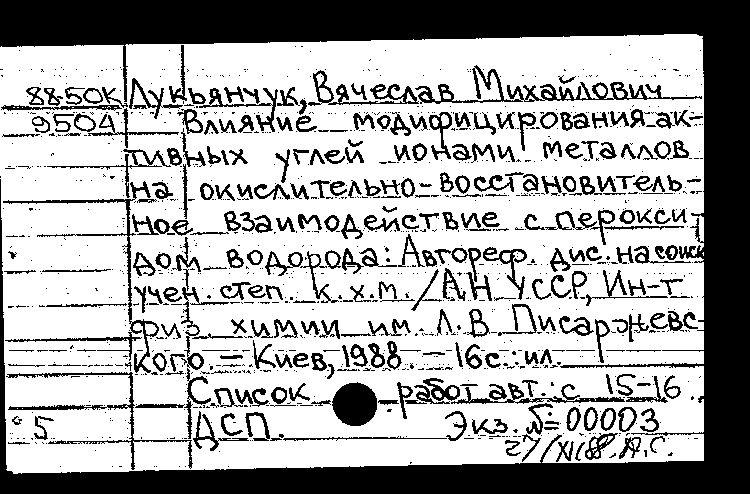 88-50К Лукьянчук, Вячеслав Михайлович
9504 Влияние модифицирования ак-
тивных углей ионами металлов
на окислительно-восстановитель-
ное взаимодействие с перокси-
дом водорода: Автореф. дис. на соиск
учен. степ. к.х.м. / АН УССР, Ин-т
физ. химии им. Л.В Писаржевс-
кого. – Киев, 1988. – 16с.: ил.
Список работ авт.: с 15-16.
5 ДСП. Экз. № 00003